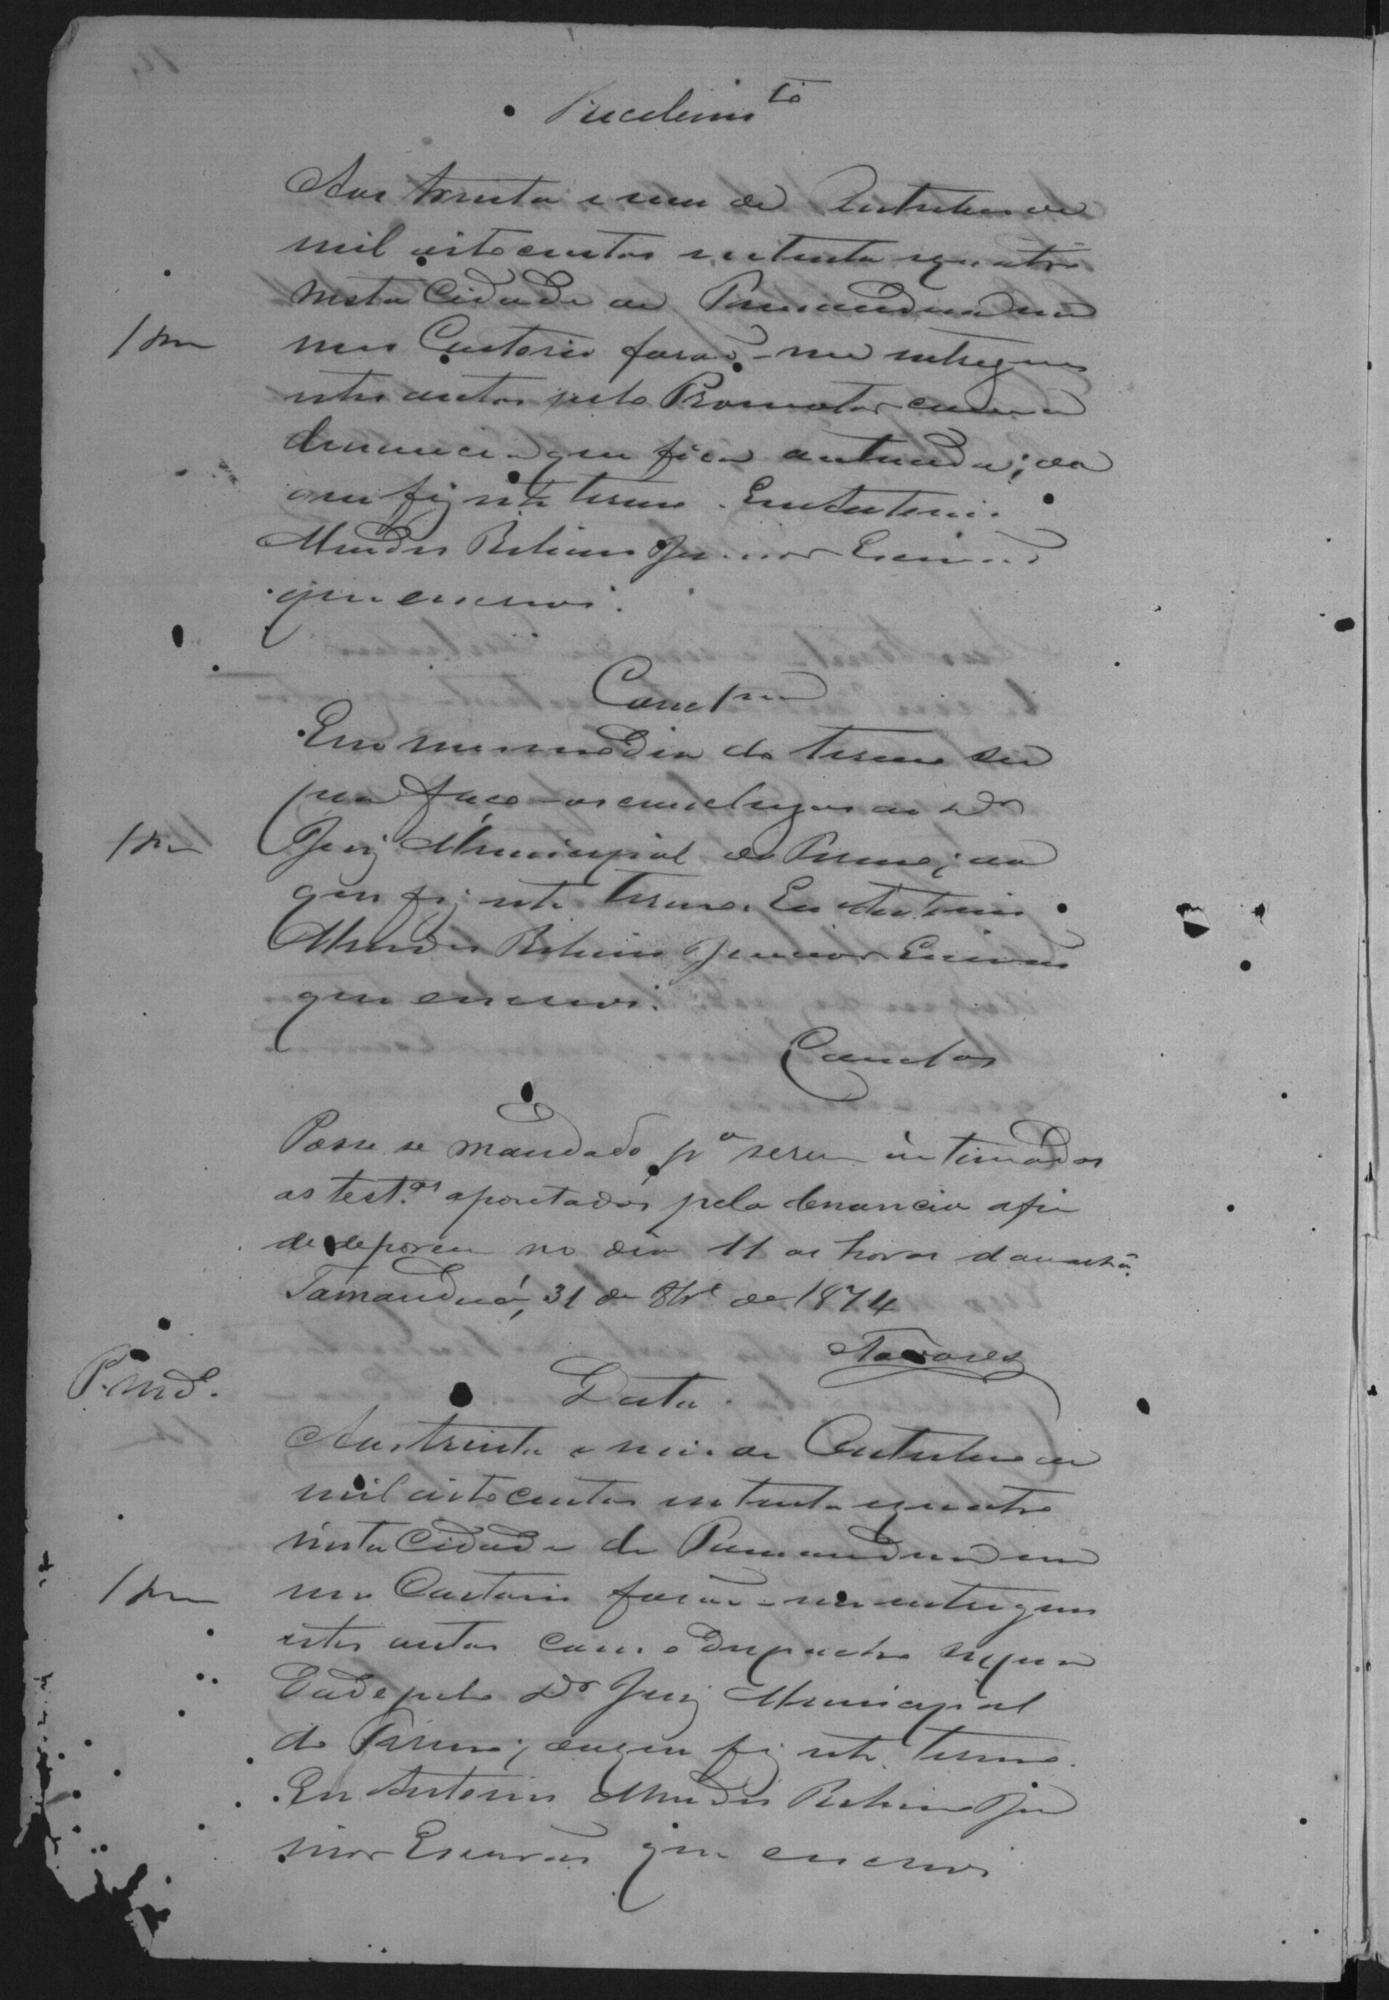 Recebim.to
Aos trinta e um de Outubro de
mil oitocentos e setenta e quatro
nesta Cidade de Tamanduá em
meu Cartorio forão-me entregues
estes autos pelo Promotor com a
denuncia que fica autuada; do
que fiz este termo. Eu Antonio
Mendes Ribeiro Junior Escrivão
que escrevi.
Concl.am
Em o mesmo dia do termo su
pra faço-os conclusos ao Dr
Juiz Municipal do Termo; do
que fiz este termo. Eu Antonio
Mendes Ribeiro Junior Escrivão
que escrevi.
Conclos
Passe se mandado pa serem intimadas
as test.as apontadas pela denuncia afim
de deporem no dia 11 as horas da manhã.
Tamanduá, 31 de 8br.o de 1874
Tavares
P. md.
Data.
Aos trinta e um de Outubro de
mil oitocentos setenta e quatro
nesta Cidade de Tamanduá em
meu Cartorio forão-me entregues
estes autos com o Despacho supra
Dado pelo Dr Juiz Municipal
do Termo; do que fiz este termo.
Eu Antonio Mendes Ribeiro Ju
nior Escrivão que escrevi